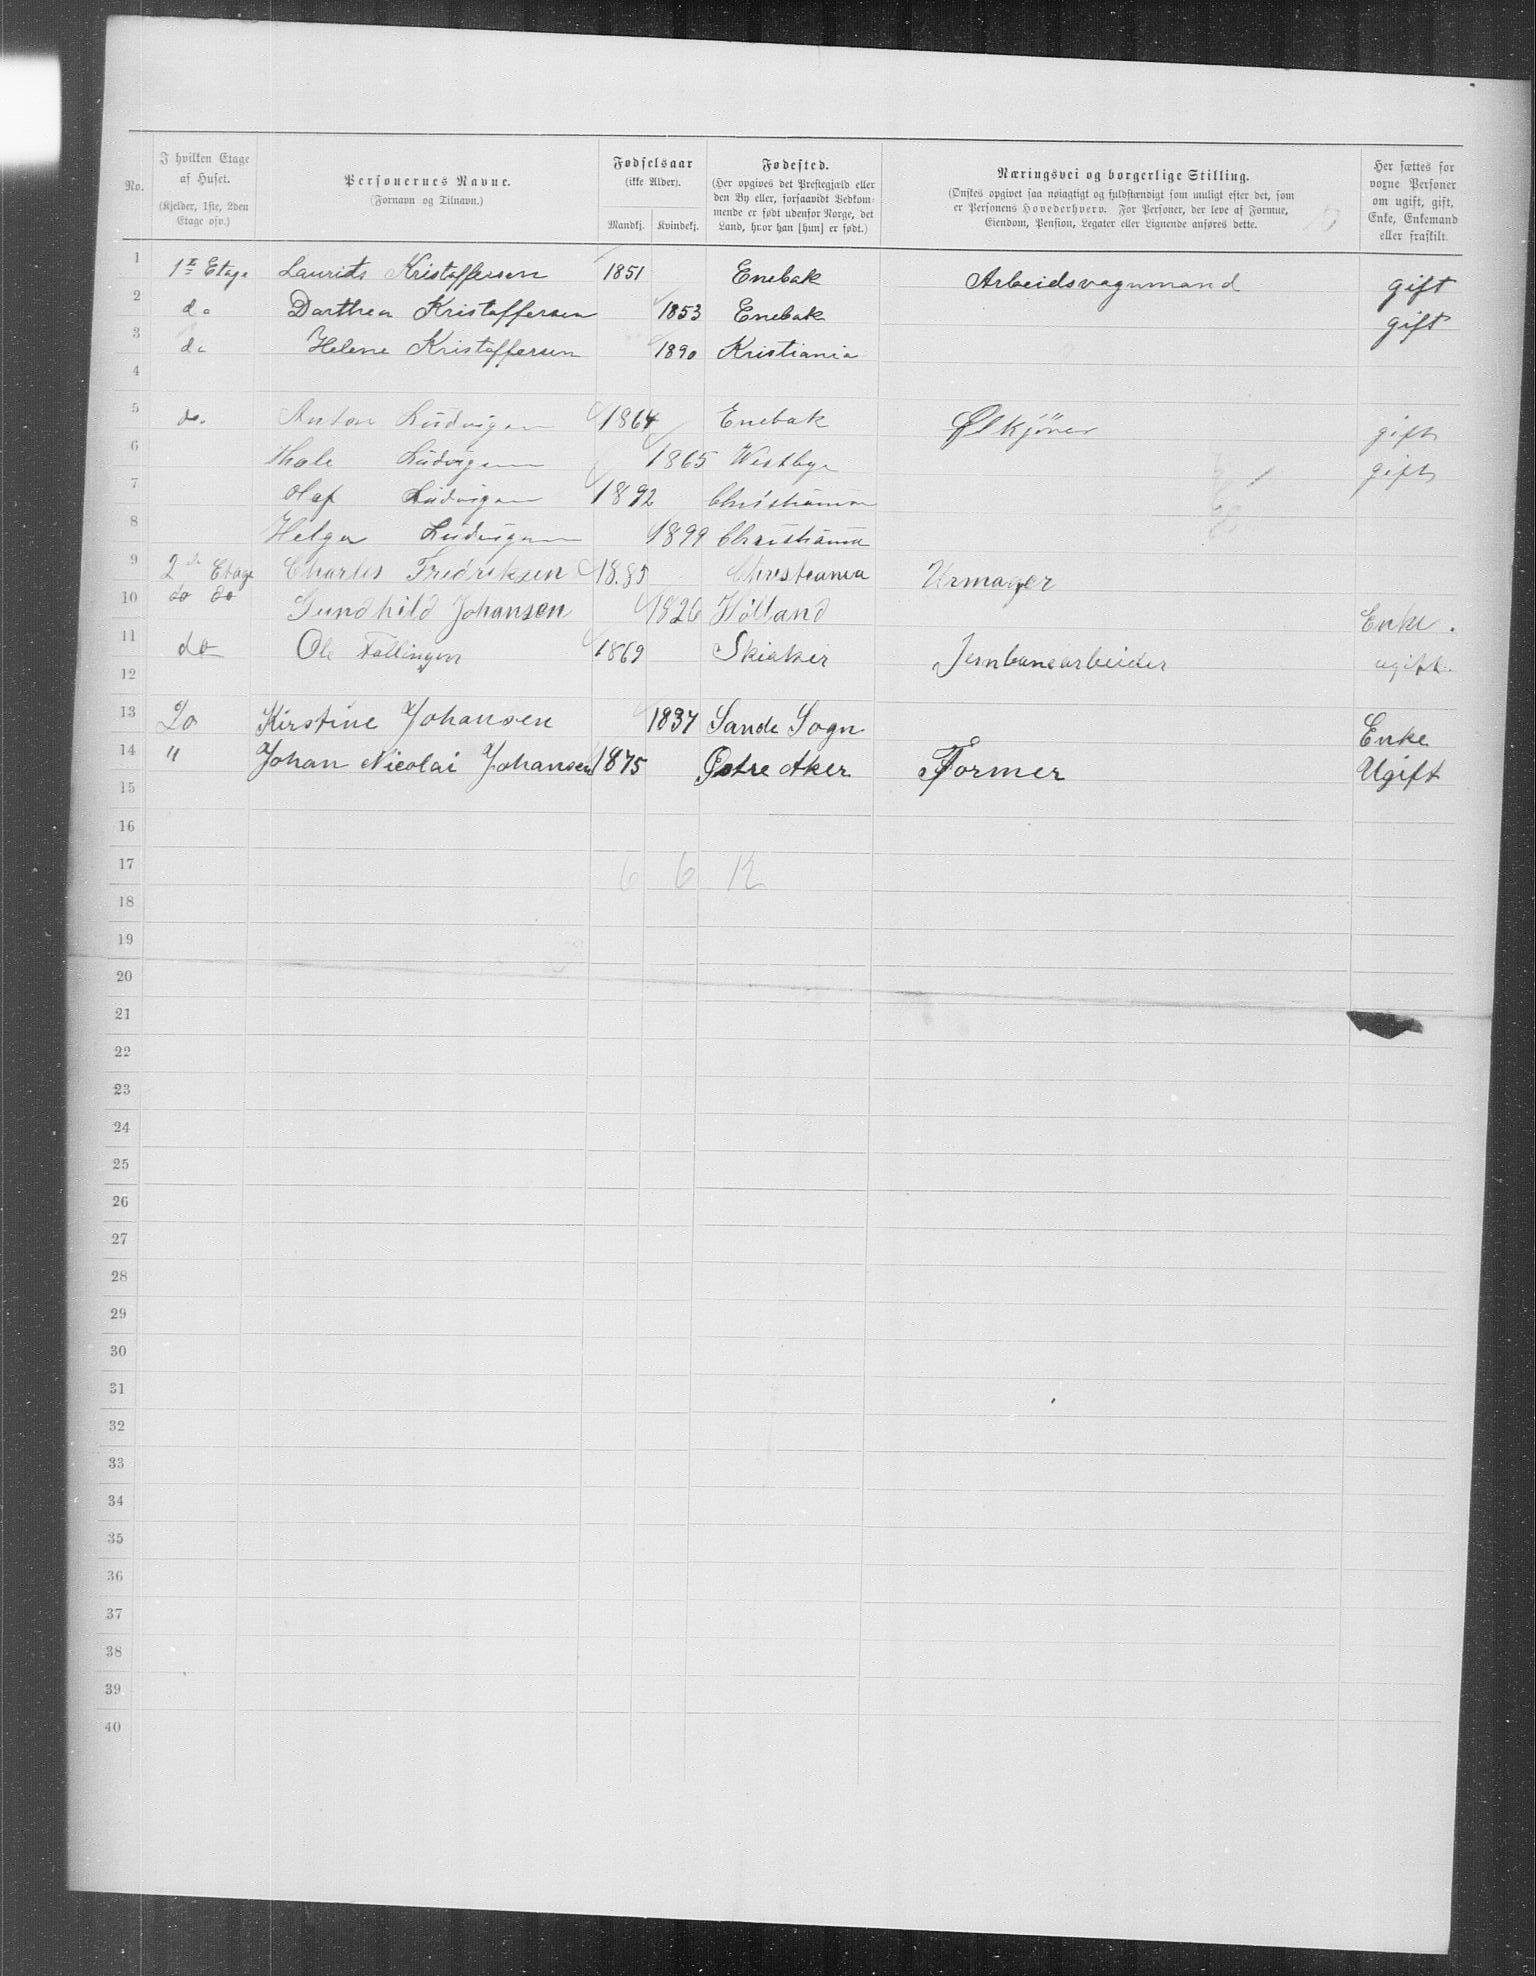 No. I hvilken Etage af Huset. (Kjelder, 1ste, 2den Etage osv.) Personernes Navne. (Fornavn og Tilnavn.) Fødselsaar (ikke Alder). Mandkj. Kvindekj. Fødested. (Her opgives det Prestegjæld eller den By eller, forsaavidt Vedkommende er født udenfor Norge, det Land, hvor han [hun] er født.) Næringsvei og borgerlige Stilling. (Ønskes opgivet saa nøiagtigt og fuldstændigt som muligt efter det, som er Personens Hovederhverv. For Personer, der leve af Formue, Eiendom, Pension, Legater eller Lignende anføres dette. Her sættes for voxne Personer om ugift, gift, Enke, Enkemand eller fraskilt.
1 1ste Etage Laurits Kristoffersen 1851 Enebak Arbeidsvognmand gift
2 do Dorthea Kristoffersen 1853 Enebak gift
3 do Helene Kristoffersen 1890 Kristiania
4
5 do. Anton Ludvigsen 1864 Enebak Ølkjører gift
6 Thale Ludvigsen 1865 Westbye gift
7 Olaf Ludvigsen 1892 Christiania
8 Helga Ludvigsen 1899 Christiania
9 2de Etage Charles Fredriksen 1885 Christiania Urmager
10 do do Gundhild Johansen 1826 Høland Enke.
11 do Ole Fallingen 1869 Skiaker Jernbanearbeider ugift.
12
13 Do Kirstine Johansen 1837 Sande Sogn Enke
14 " Johan Nicolai Johansen 1875 Østre Aker Former Ugift
15
16
17 6 6 K
18
19
20
21
22
23
24
25
26
27
28
29
30
31
32
33
34
35
36
37
38
39
40